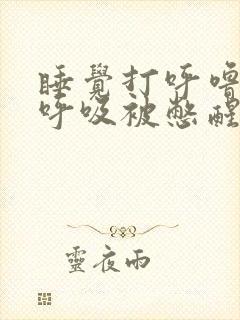 睡覺打呼嚕
呼吸被憋醒
靈夜雨